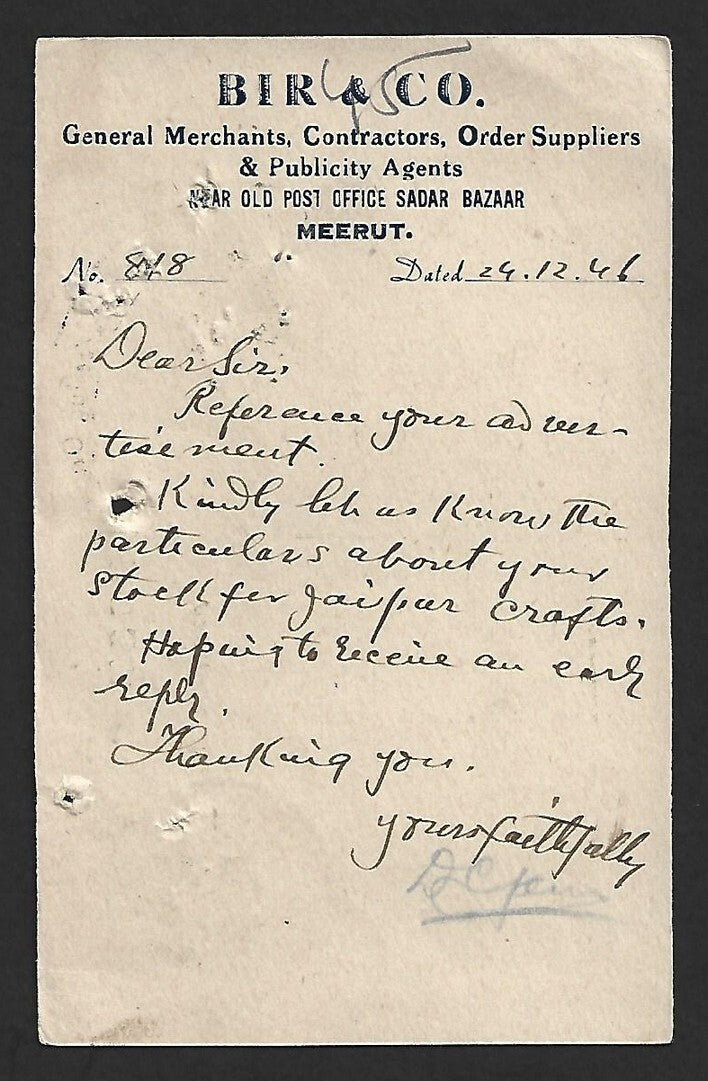 BIR & CO.
45
General Merchants, Contractors, Order Suppliers
& Publicity Agents
NEAR OLD POST OFFICE SADAR BAZAAR
MEERUT.
No. 848 Dated 24.12.46
Dear Sir,
Reference your adver-
tisement.
Kindly let us know the
particulars about your
stock for Jaipur crafts.
Hoping to receive an early
reply.
Thanking you.
yours faithfully